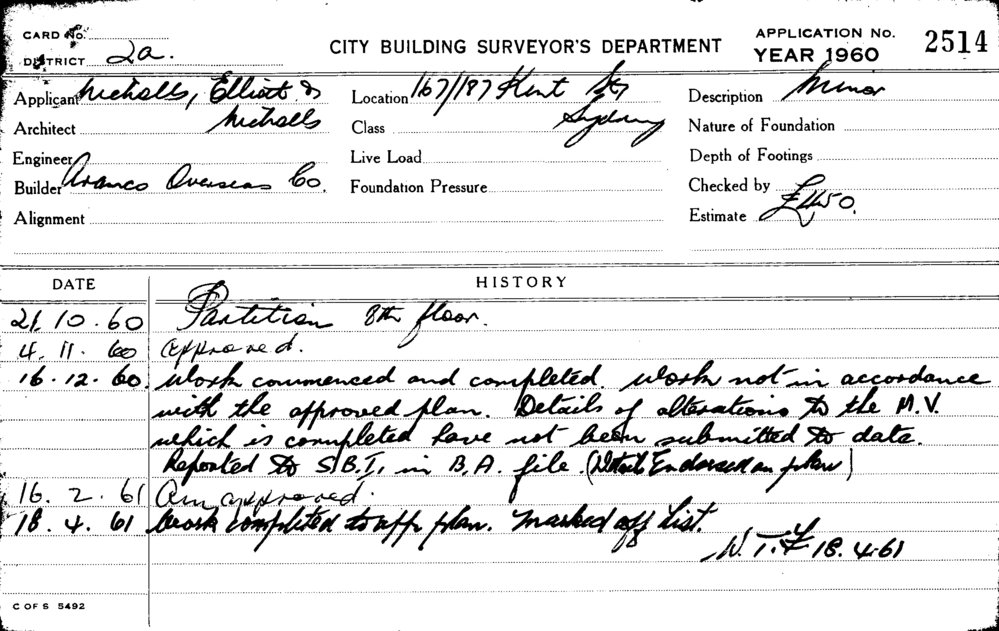 CARD No.
DISTRICT 2a.
CITY BUILDING SURVEYOR'S DEPARTMENT
APPLICATION No. 2514
YEAR 1960
Applicant Nicholls, Elliott &
Nicholls
Location 167/187 Kent St
Sydney
Description Minor
Architect
Class
Nature of Foundation
Engineer
Live Load
Depth of Footings
Builder Aramco Overseas Co.
Foundation Pressure
Checked by
Alignment
Estimate £450.
DATE HISTORY
21.10.60 Partition 8th floor.
4.11.60 approved.
16.12.60. Work commenced and completed. Work not in accordance
with the approved plan. Details of alterations to the M.V.
which is completed have not been submitted to date.
Reported to S.B.I. in B.A. file. (Details Endorsed on plan)
16.2.61 Am approved.
18.4.61 Work completed to app. plan. Marked off List.
18.4.61
C OF S 5492